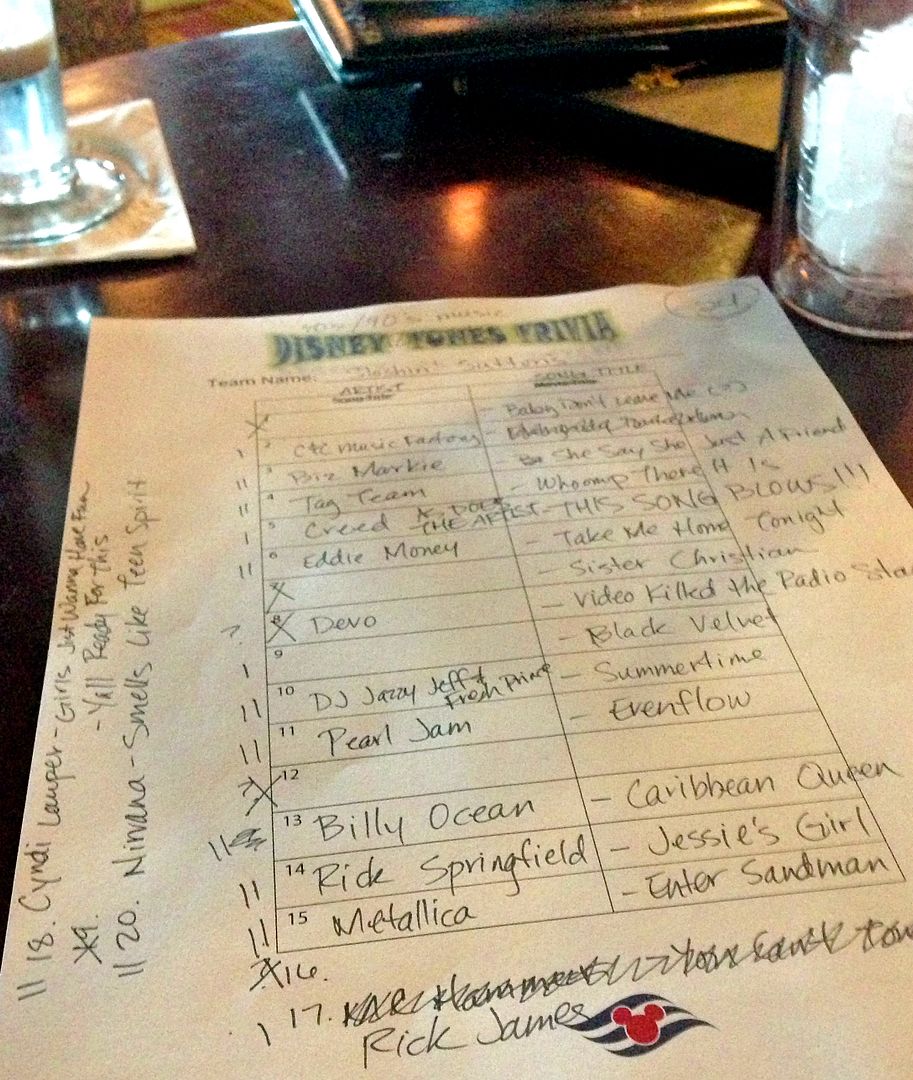 80s/90's music
DISNEY TUNES TRIVIA
Team Name:
ARTIST SONG TITLE
1 - Baby Don't Leave Me (?)
2 C&C Music Factory
3 Biz Markie - She Say She Just A Friend
4 Tag Team - Whoomp There It Is
5 Creed THE ARTIST - THIS SONG BLOWS!!!
6 Eddie Money - Take Me Home Tonight
7 - Sister Christian
8 Devo - Video Killed the Radio Star
9 - Black Velvet
10 DJ Jazzy Jeff & Fresh Prince - Summertime
11 Pearl Jam - Evenflow
12
13 Billy Ocean - Caribbean Queen
14 Rick Springfield - Jessie's Girl
15 Metallica - Enter Sandman
16.
17.
Rick James
18. Cyndi Lauper - Girls Just Wanna Have Fun
19. - Y'all Ready For This
20. Nirvana - Smells Like Teen Spirit